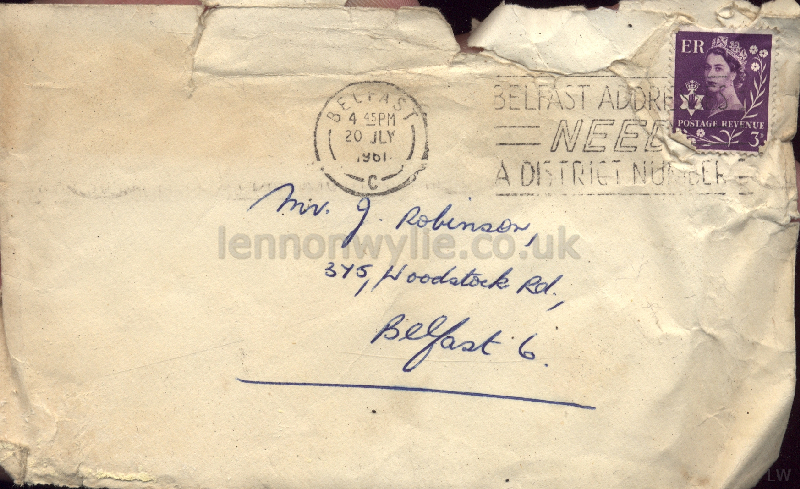 BELFAST
4 45PM
20 JLY
1961
C
BELFAST ADDRE
NEED
A DISTRICT NUMBER
ER
POSTAGE REVENUE
3D
Mr. J. Robinson,
375, Woodstock Rd.,
Belfast 6.
lennonwylie.co.uk
LW